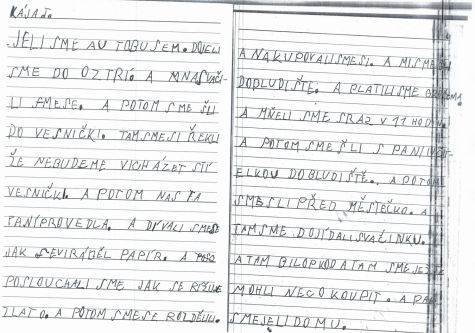 KÁJA J.
JELI SME AU TOBUSEM. DOJELI
SME DO OZTRÍ. A MNASVAČI-
LI SMESE. A POTOM SME ŠLI
DO VESNIČKI. TAMSMESI ŘEKLI
ŽE NEBUDEME VICHÁZET STÝ
VESNIČKI. A POTOM NAS TA
PANÍPROVEDLA. A DÝVALI SMESE
JAK SEVIRÁBĚL PAPÍR. A
POSLOUCHALI SME JAK SE RIŽUJE
ZLATO. A POTOM SMESE ROZDĚLILI.
A NAKUPOVALISMESI. A MISMEŠLI
DOBLUDIŠTĚ. A PLATILISME
A MŇELI SME SRAZ V 11 HODIN.
A POTOM SMEŠLI S PANÍ
ELKOU DOBLUDIŠTĚ. A POTOM
SMESLI PŘED MĚSTEČKO. A
TAMSME DOJÍDALI SVAČINKU.
A TAM BILO A TAM SME
MOHLI NECO KOUPIT. A PAK
SMEJELI DOMU.